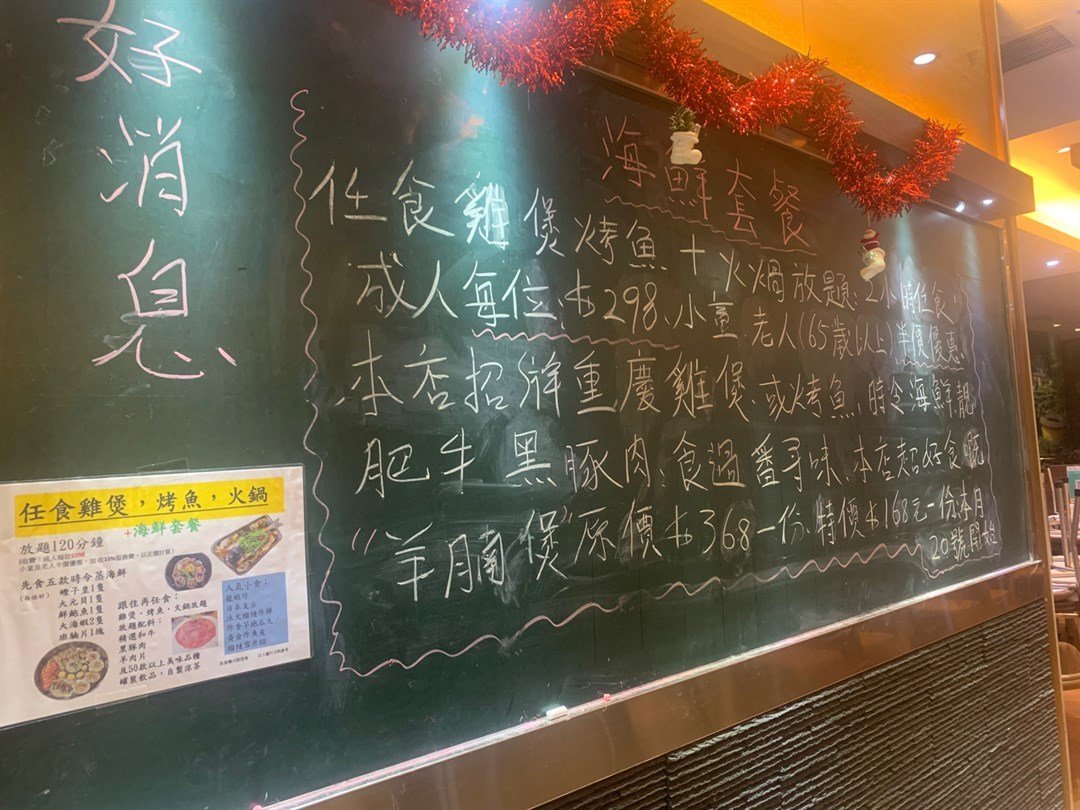 好消息
海鮮套餐
任食雞煲烤魚+火鍋放題、2小時任食、
成人每位、$298、小童、老人(65歲以上)半價優惠、
本店招牌重慶雞煲、或烤魚、時令海鮮、靚
肥牛、黑豚肉、食過番尋味、本店超好食嘅
"羊腩煲"原價$368一份、特價$168元一份、本月
20號開始
任食雞煲，烤魚，火鍋
+海鮮套餐
放題120分鐘
(收費：成人每位$298
小童及老人半價優惠，加收10%服務費，以正價計算)
先食五款時令蒸海鮮
(每位計)
蟶子皇1隻
大元貝1隻
鮮鮑魚1隻
大海蝦2隻
班腩片1塊
跟住再任食：
雞煲，烤魚，火鍋放題
放題配料：
精選和牛
黑豚肉
羊肉片
及50款以上美味品種
罐裝飲品，自製涼茶
人氣小食：
龍蝦仔
日本支豆
炸香芋地瓜丸
黃金炸魚皮
榴槤雪米糍